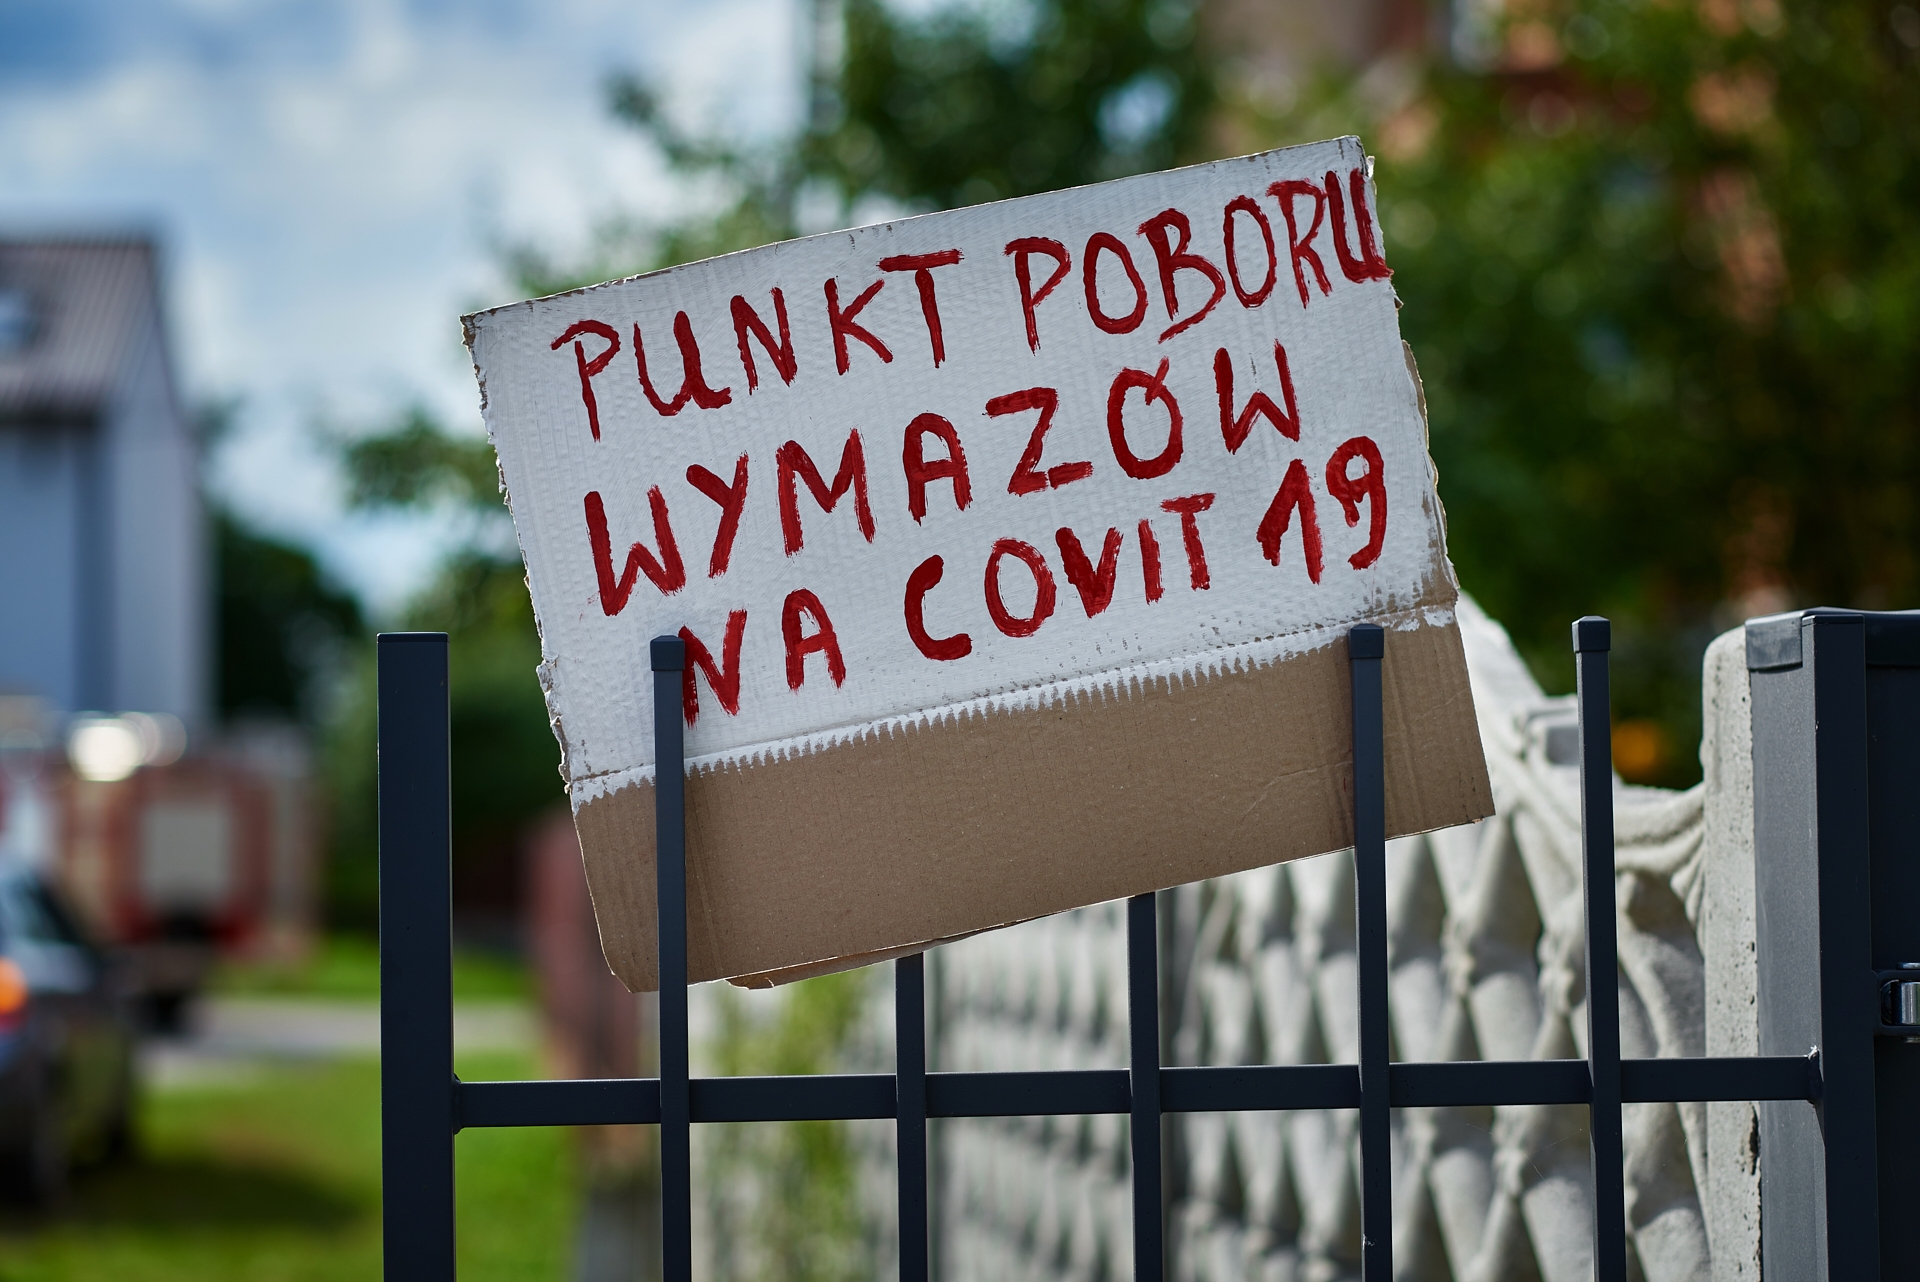 PUNKT POBORU
WYMAZÓW
NA COVIT 19